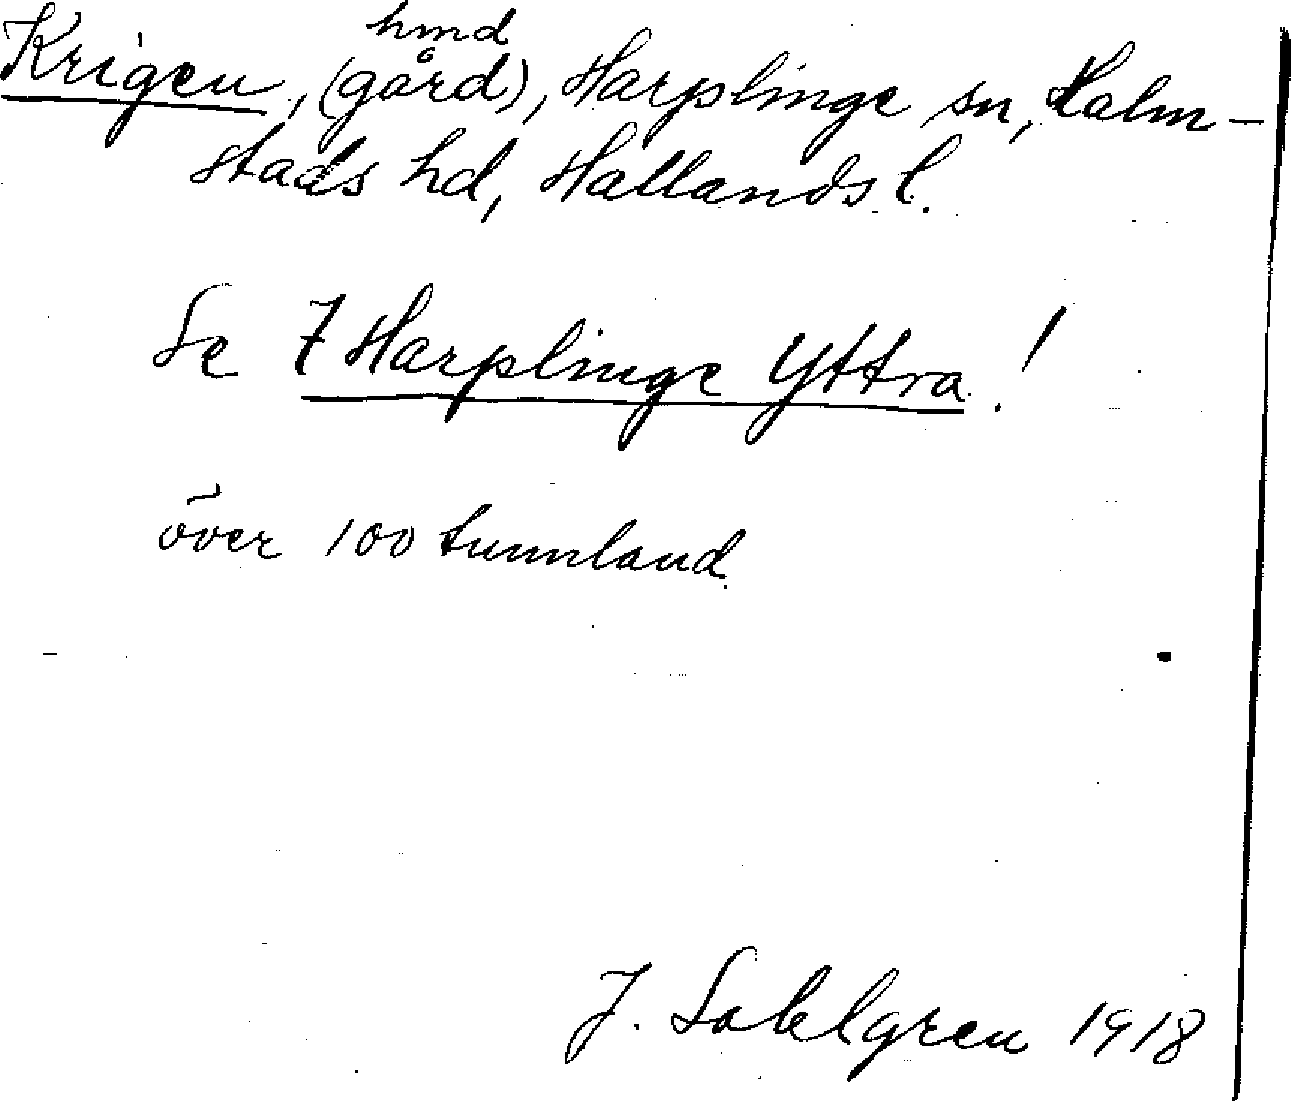 hmd
Krigen, (gård), Harplinge sn, Halm-
stads hd, Hallands l.
Se 7 Harplinge Yttra!
över 100 tunnland
J. Sahlgren 1918